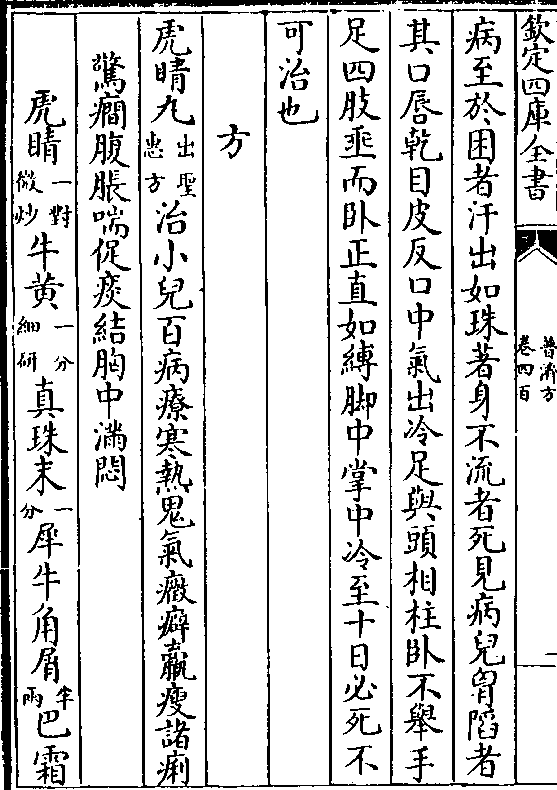 欽定四庫全書
普濟方
卷四百
病至於困者汗出如珠著身不流者死見病兒胷䧟者
其口唇乾目皮反口中氣出冷足與頭相柱卧不舉手
足四肢垂而卧正直如縛脚中掌中冷至十日必死不
可治也
方
虎睛丸出聖惠方治小兒百病療寒熱鬼氣癥癖羸瘦諸痢
驚癇腹脹喘促痰結胸中滿悶
虎睛一對微炒牛黄一分細研真珠末一分犀牛角屑半兩巴霜